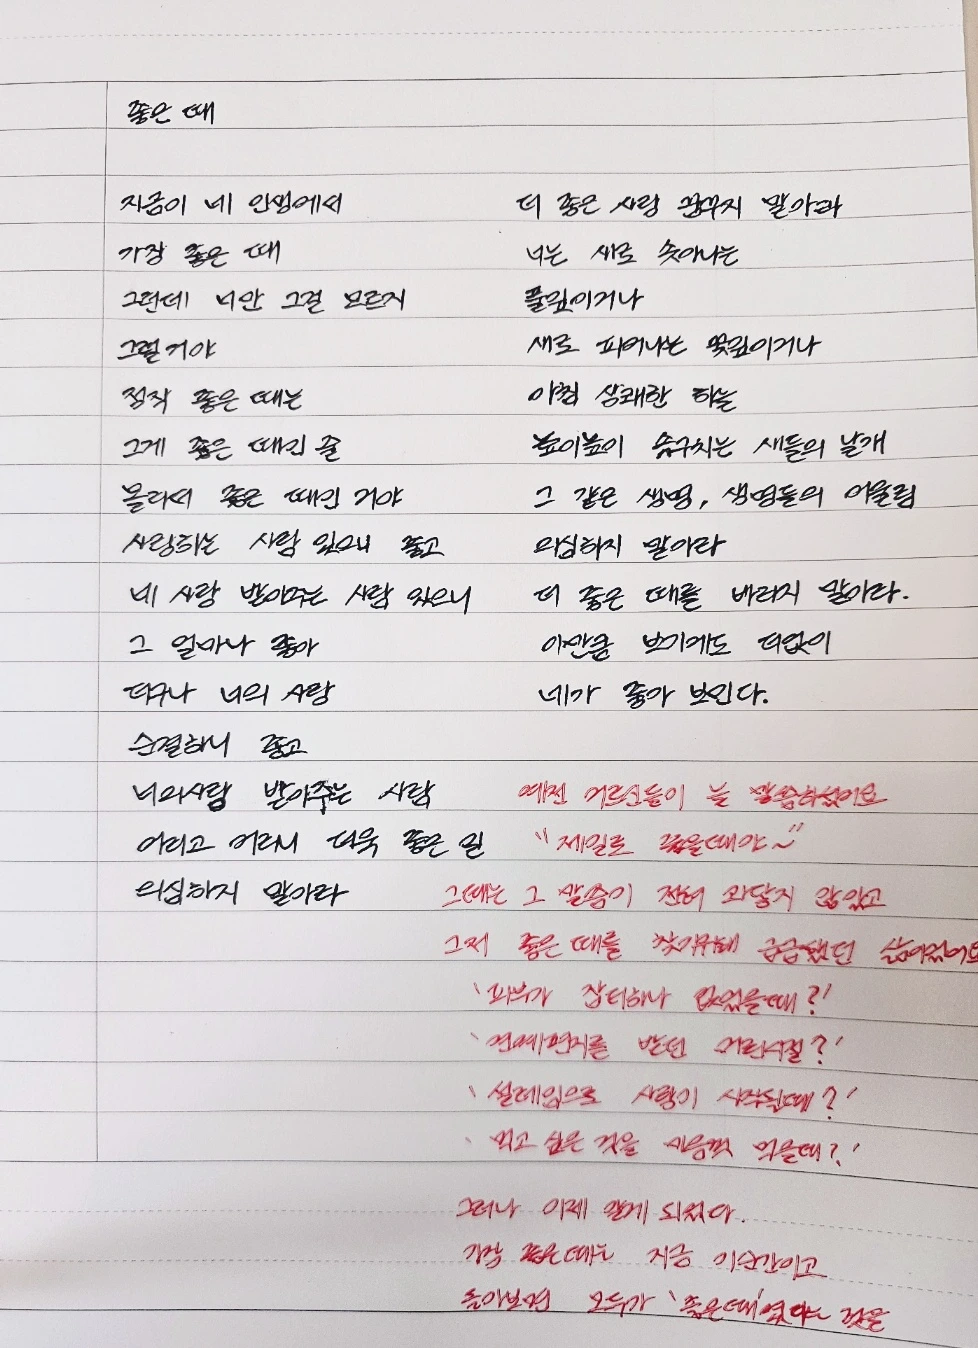 좋은 때
지금이 네 인생에서
가장 좋은 때
그런데 너만 그걸 모르지
그럴거야
정작 좋은 때는
그게 좋은 때인 줄
몰라서 좋은 때인 거야
사랑하는 사람 있으니 좋고
네 사랑 받아주는 사람 있으니
그 얼마나 좋아
더구나 너의 사랑
순결하니 좋고
너의사랑 받아주는 사람
어리고 여리니 더욱 좋은 일
의심하지 말아라
더 좋은 사랑 꿈꾸지 말아라
너는 새로 솟아나는
풀잎이거나
새로 피어나는 꽃잎이거나
아침 상쾌한 하늘
높이높이 솟구치는 새들의 날개
그 같은 생명, 생명들의 어울림
의심하지 말아라
더 좋은 때를 바라지 말아라.
이만큼 보기에도 더없이
네가 좋아 보인다.
예전 어르신들이 늘 말씀하셨어요
"제일로 좋을때야~"
그때는 그 말씀이 전혀 와닿지 않았고
그저 좋은 때를 찾기위해 급급했던 삶이었어요
'피부가 잡티하나 없었을때?'
'연예편지를 받던 어린시절?'
'설레임으로 사랑이 시작된때?'
'먹고 싶은 것을 마음껏 먹을때?'
그러나 이제 알게 되었다.
가장 좋은때는 지금 이순간이고
돌아보면 모두가 '좋은때'였다는 것을